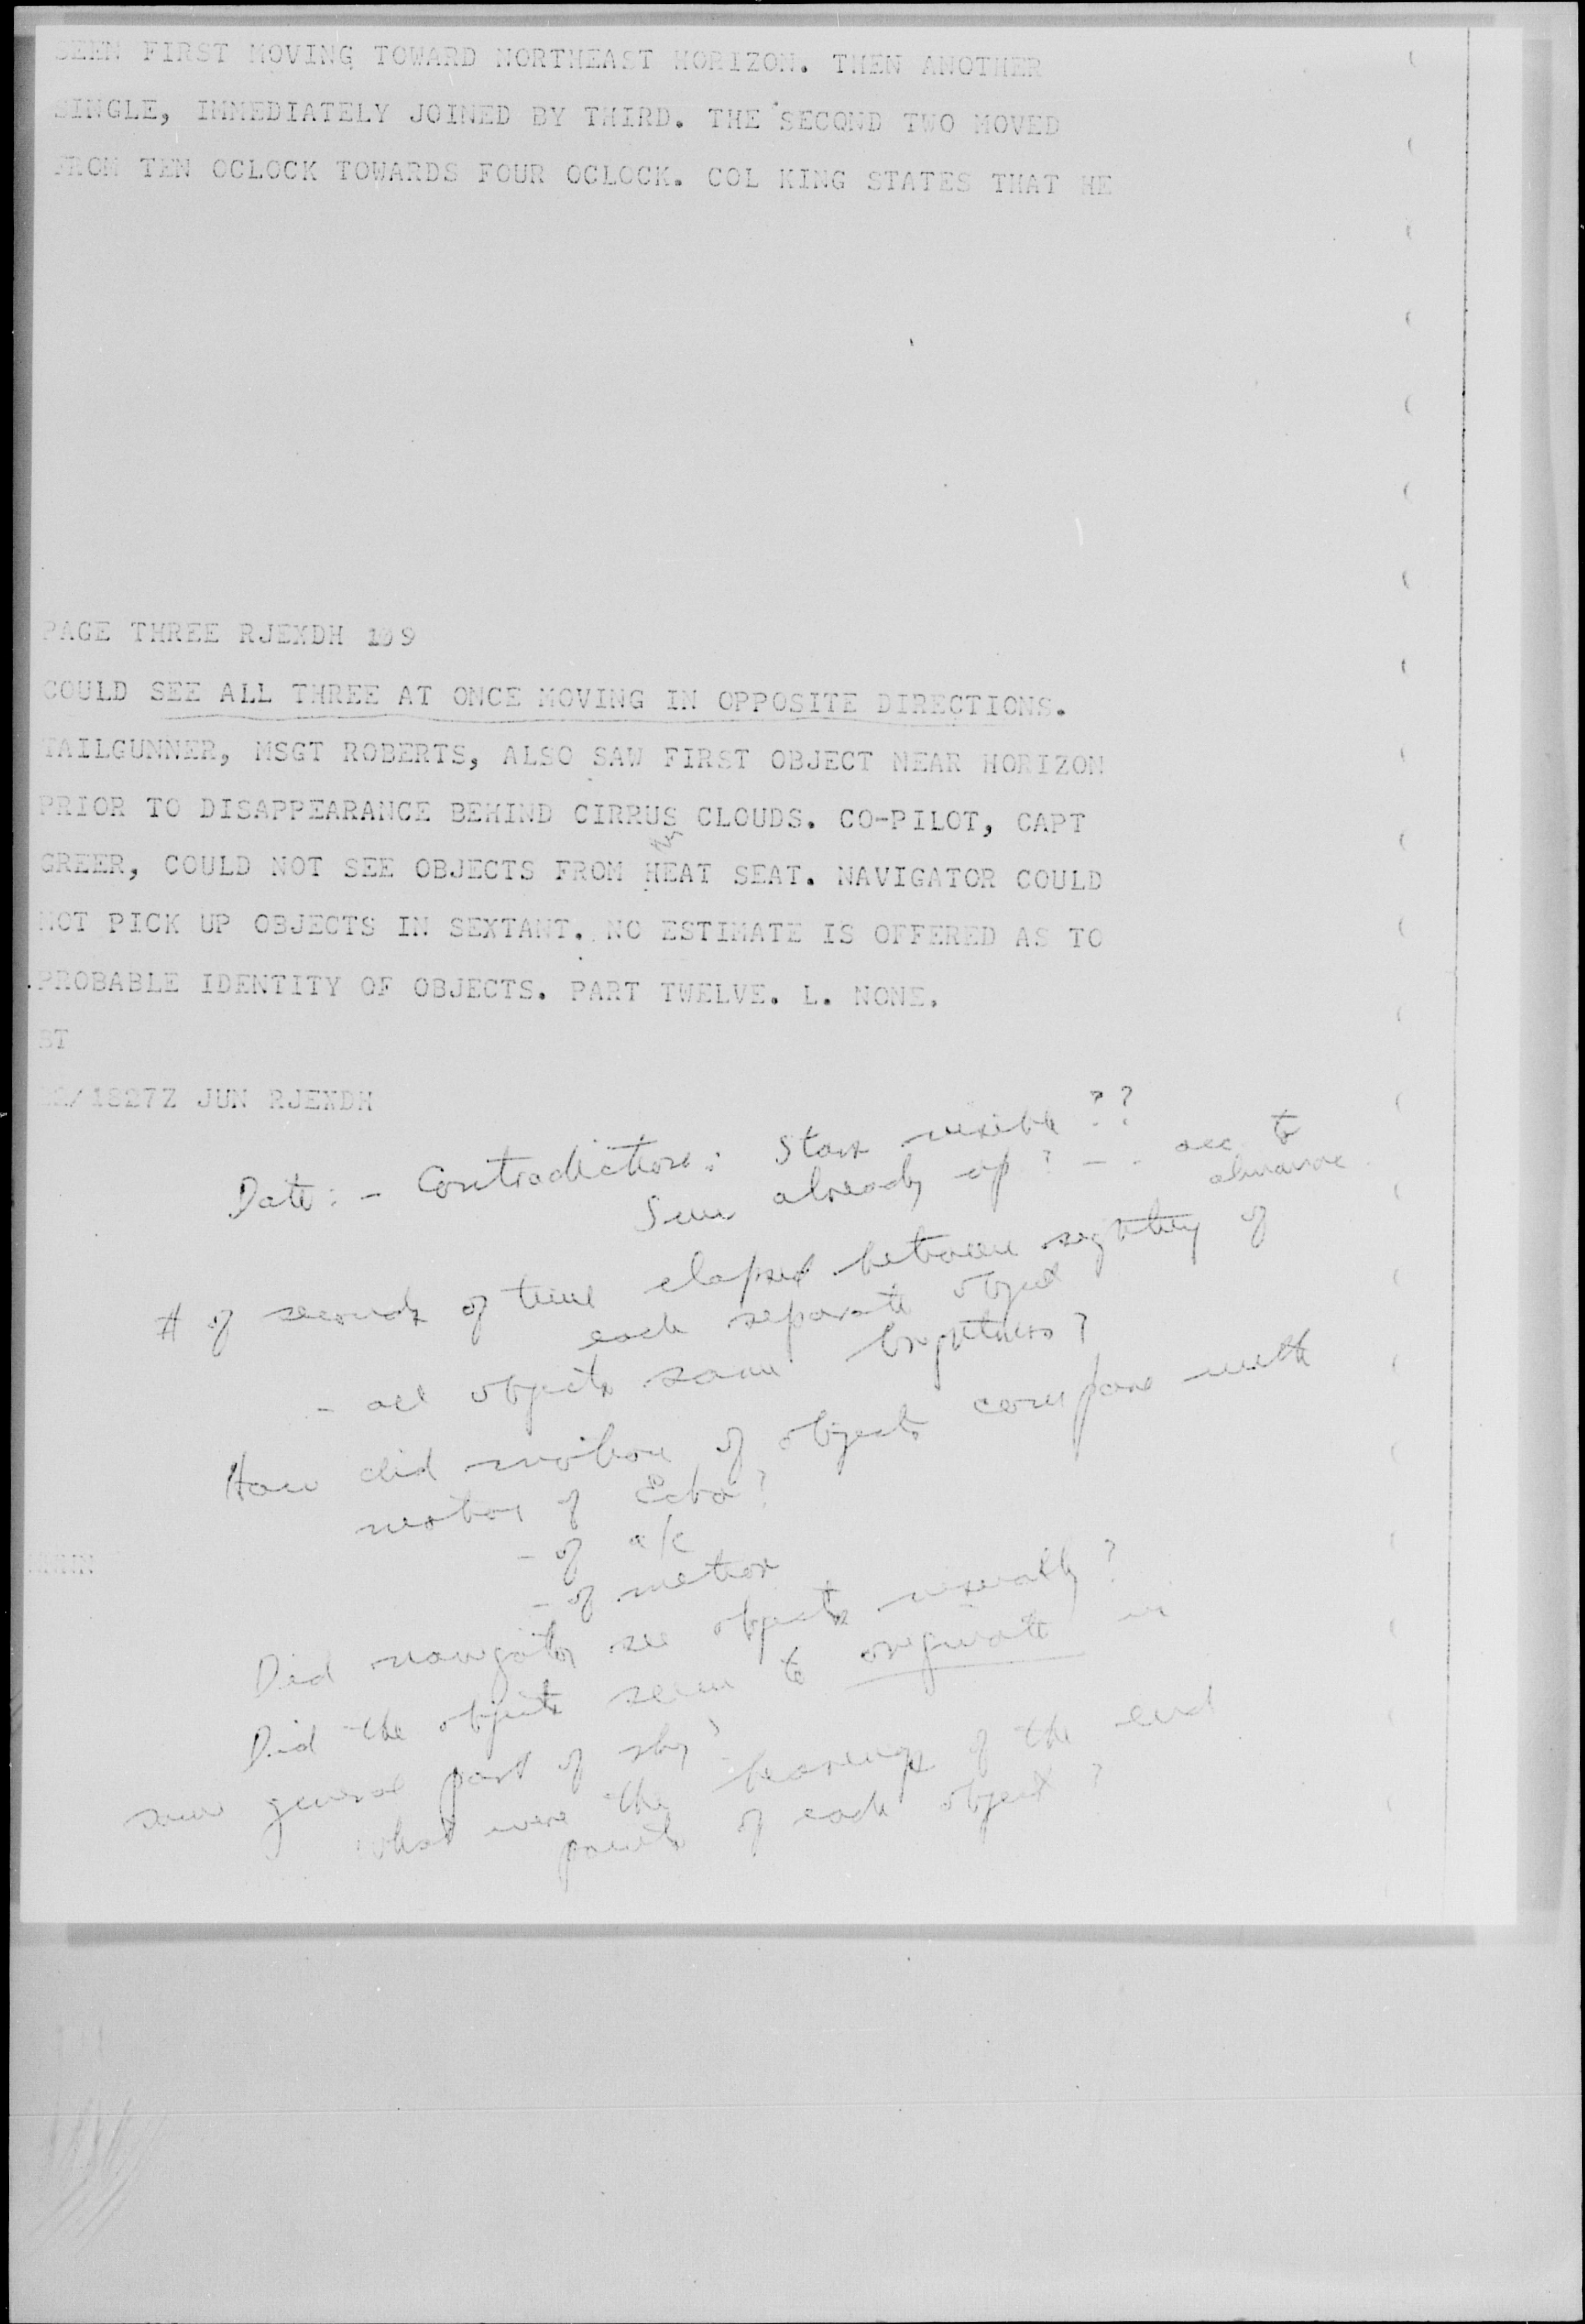 SEEN FIRST MOVING TOWARD NORTHEAST HORIZON. THEN ANOTHER
SINGLE, IMMEDIATELY JOINED BY THIRD. THE SECOND TWO MOVED
FROM TEN OCLOCK TOWARDS FOUR OCLOCK. COL KING STATES THAT HE
PAGE THREE RJEXDH 109
COULD SEE ALL THREE AT ONCE MOVING IN OPPOSITE DIRECTIONS.
TAILGUNNER, MSGT ROBERTS, ALSO SAW FIRST OBJECT NEAR HORIZON
PRIOR TO DISAPPEARANCE BEHIND CIRRUS CLOUDS. CO-PILOT, CAPT
GREER, COULD NOT SEE OBJECTS FROM HEAT SEAT. NAVIGATOR COULD
NOT PICK UP OBJECTS IN SEXTANT. NO ESTIMATE IS OFFERED AS TO
PROBABLE IDENTITY OF OBJECTS. PART TWELVE. L. NONE.
BT
/1827Z JUN RJEXDH
Date: - Contradiction: Stars visible??
Sun already up? - - acc to
almanac
# of seconds of time elapsed between sighting of
each separate object
- all objects same brightness?
How did motion of objects compare with
motion of Echo?
- of a/c
- of meteor
NNNN
Did navigator see objects visually?
Did the objects seem to originate in
same general part of sky?
What were the bearings of the end
points of each object?